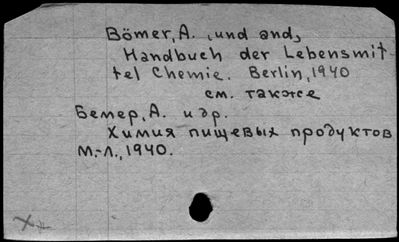 Bömer, A. und and,
Handbuch der Lebensmit-
tel Chemie. Berlin, 1940
см. также
Бемер, А. и др.
Химия пищевых продуктов
М.-Л., 1940.